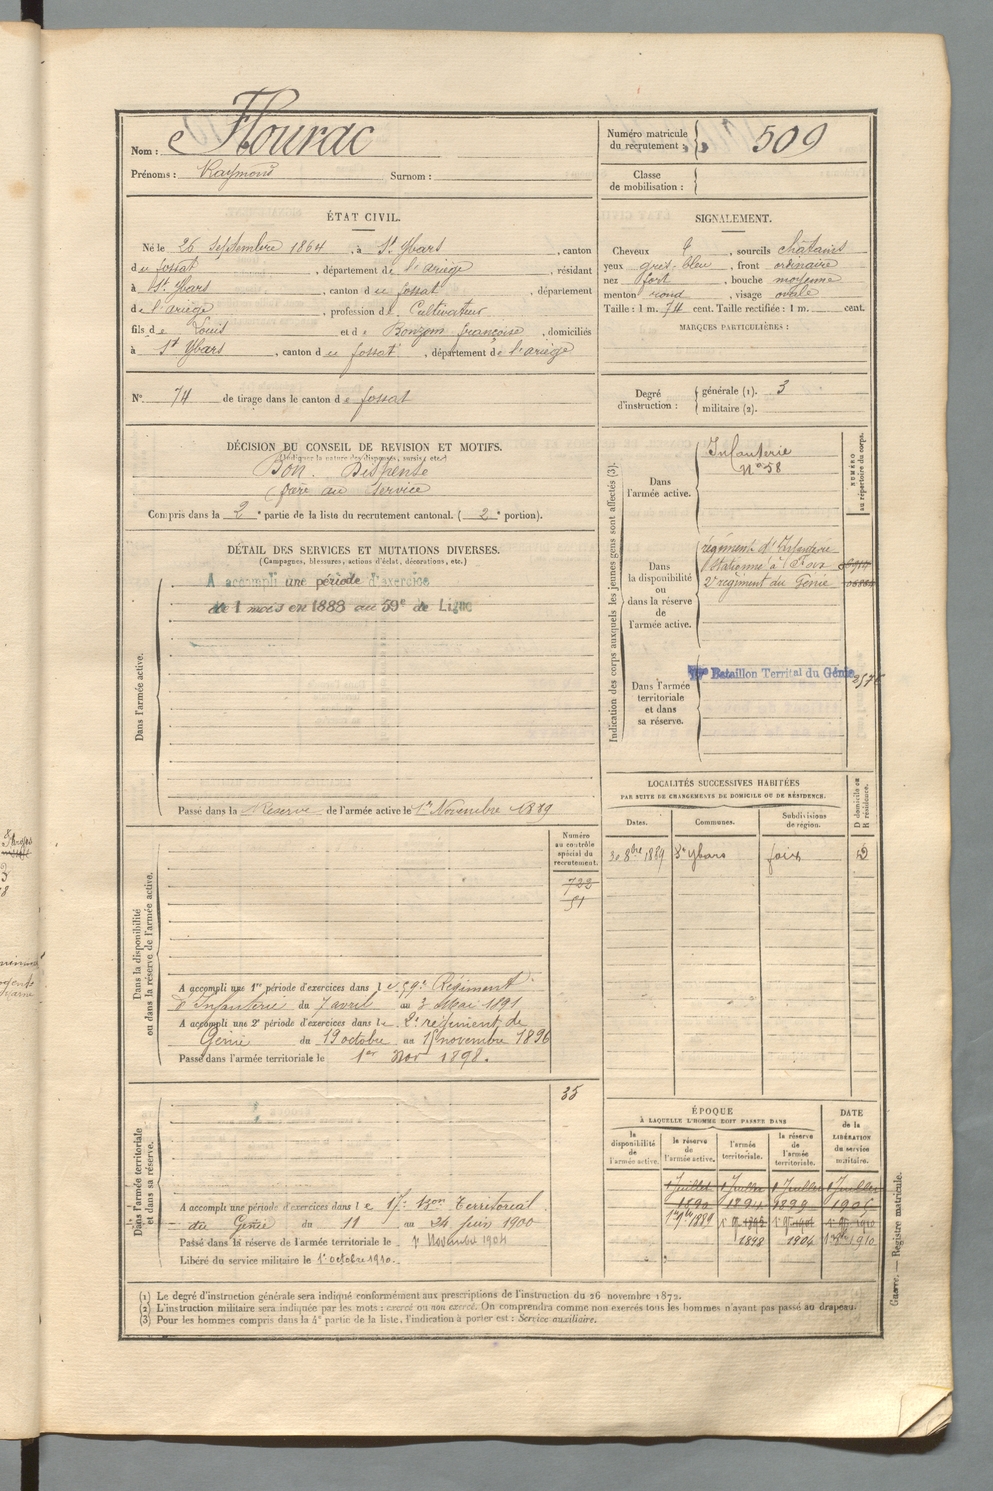 Nom : Flourac
Numéro matricule du recrutement : 509
Prénoms : Raymond Surnom :
Classe de mobilisation :
ÉTAT CIVIL.
Né le 26 Septembre 1864, à St Ybars, canton
du fossat, département de l'ariège, résidant
à St Ybars, canton du fossat, département
de l'ariège, profession de Cultivateur
fils de Louis et de Bonzom françoise, domiciliés
à St Ybars, canton du fossat, département de l'ariège
SIGNALEMENT.
Cheveux et, sourcils châtains
yeux gris-bleu, front ordinaire
nez fort, bouche moyenne
menton rond, visage ovale
Taille : 1 m. 74 cent. Taille rectifiée : 1 m. cent.
MARQUES PARTICULIÈRES :
N° 74 de tirage dans le canton de fossat
Degré d'instruction : générale (1). 3
militaire (2).
DÉCISION DU CONSEIL DE REVISION ET MOTIFS.
(Indiquer la nature des dispenses, sursis, etc.)
Bon. Dispensé
frère au service
Compris dans la 2e partie de la liste du recrutement cantonal. (2e portion).
DÉTAIL DES SERVICES ET MUTATIONS DIVERSES.
(Campagnes, blessures, actions d'éclat, décorations, etc.)
Dans l'armée active.
A accompli une période d'exercice
de 1 mois en 1888 au 59e de Ligne
Passé dans la Réserve de l'armée active le 1er Novembre 1889
Indication des corps auxquels les jeunes gens sont affectés (3).
NUMÉRO au répertoire du corps.
Dans l'armée active.
Infanterie
N° 58
Dans la disponibilité ou dans la réserve de l'armée active.
régiment d'Infanterie
stationné à Foix
2e régiment du Génie
Dans l'armée territoriale et dans sa réserve.
Bataillon Territal du Génie
LOCALITÉS SUCCESSIVES HABITÉES
PAR SUITE DE CHANGEMENTS DE DOMICILE OU DE RÉSIDENCE.
Dates. Communes. Subdivisions de région. D domicile ou R résidence.
30 8bre 1889 St Ybars foix D
Dans la disponibilité ou dans la réserve de l'armée active.
Numéro au contrôle spécial du recrutement.
722
51
A accompli une 1re période d'exercices dans le 59e Régiment
d'Infanterie du 7 avril au 3 Mai 1891
A accompli une 2e période d'exercices dans le 2e régiment de
Génie du 19 octobre au 15 novembre 1896
Passé dans l'armée territoriale le 1er Nov 1898.
Dans l'armée territoriale et dans sa réserve.
35
A accompli une période d'exercices dans le 17e Bon Territorial
du Génie du 11 au 24 Juin 1900
Passé dans la réserve de l'armée territoriale le 1er Novembre 1904
Libéré du service militaire le 1er octobre 1910.
ÉPOQUE
À LAQUELLE L'HOMME DOIT PASSER DANS
DATE de la LIBÉRATION du service militaire.
la disponibilité de l'armée active. la réserve de l'armée active. l'armée territoriale. la réserve de l'armée territoriale.
1 Juillet 1 Juillet 1 Juillet 1 Juillet
1890 1894 1899 1905
1898 1904 1910
Guerre. — Registre matricule.
(1) Le degré d'instruction générale sera indiqué conformément aux prescriptions de l'instruction du 26 novembre 1872.
(2) L'instruction militaire sera indiquée par les mots : exercé ou non exercé. On comprendra comme non exercés tous les hommes n'ayant pas passé au drapeau.
(3) Pour les hommes compris dans la 4e partie de la liste, l'indication à porter est : Service auxiliaire.